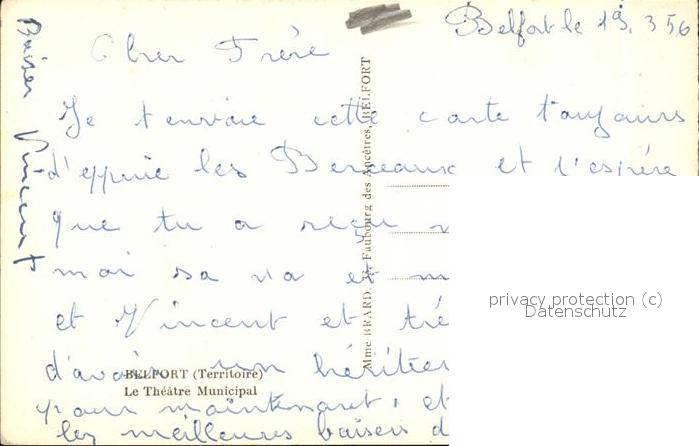 Belfort le 19. 3 56
Cher Frère
Je t'envoie cette carte toujours
d'eppuie les Berceaux et t'espére
que tu a reçu
moi sa va et m
et Vincent et tré
d'avoir un héritier
pour maintenant, et
les meilleures baisers d
Baiser Vincent
Mme BRARD, Faubourg des Ancêtres, BELFORT
BELFORT (Territoire)
Le Théâtre Municipal
privacy protection (c)
Datenschutz